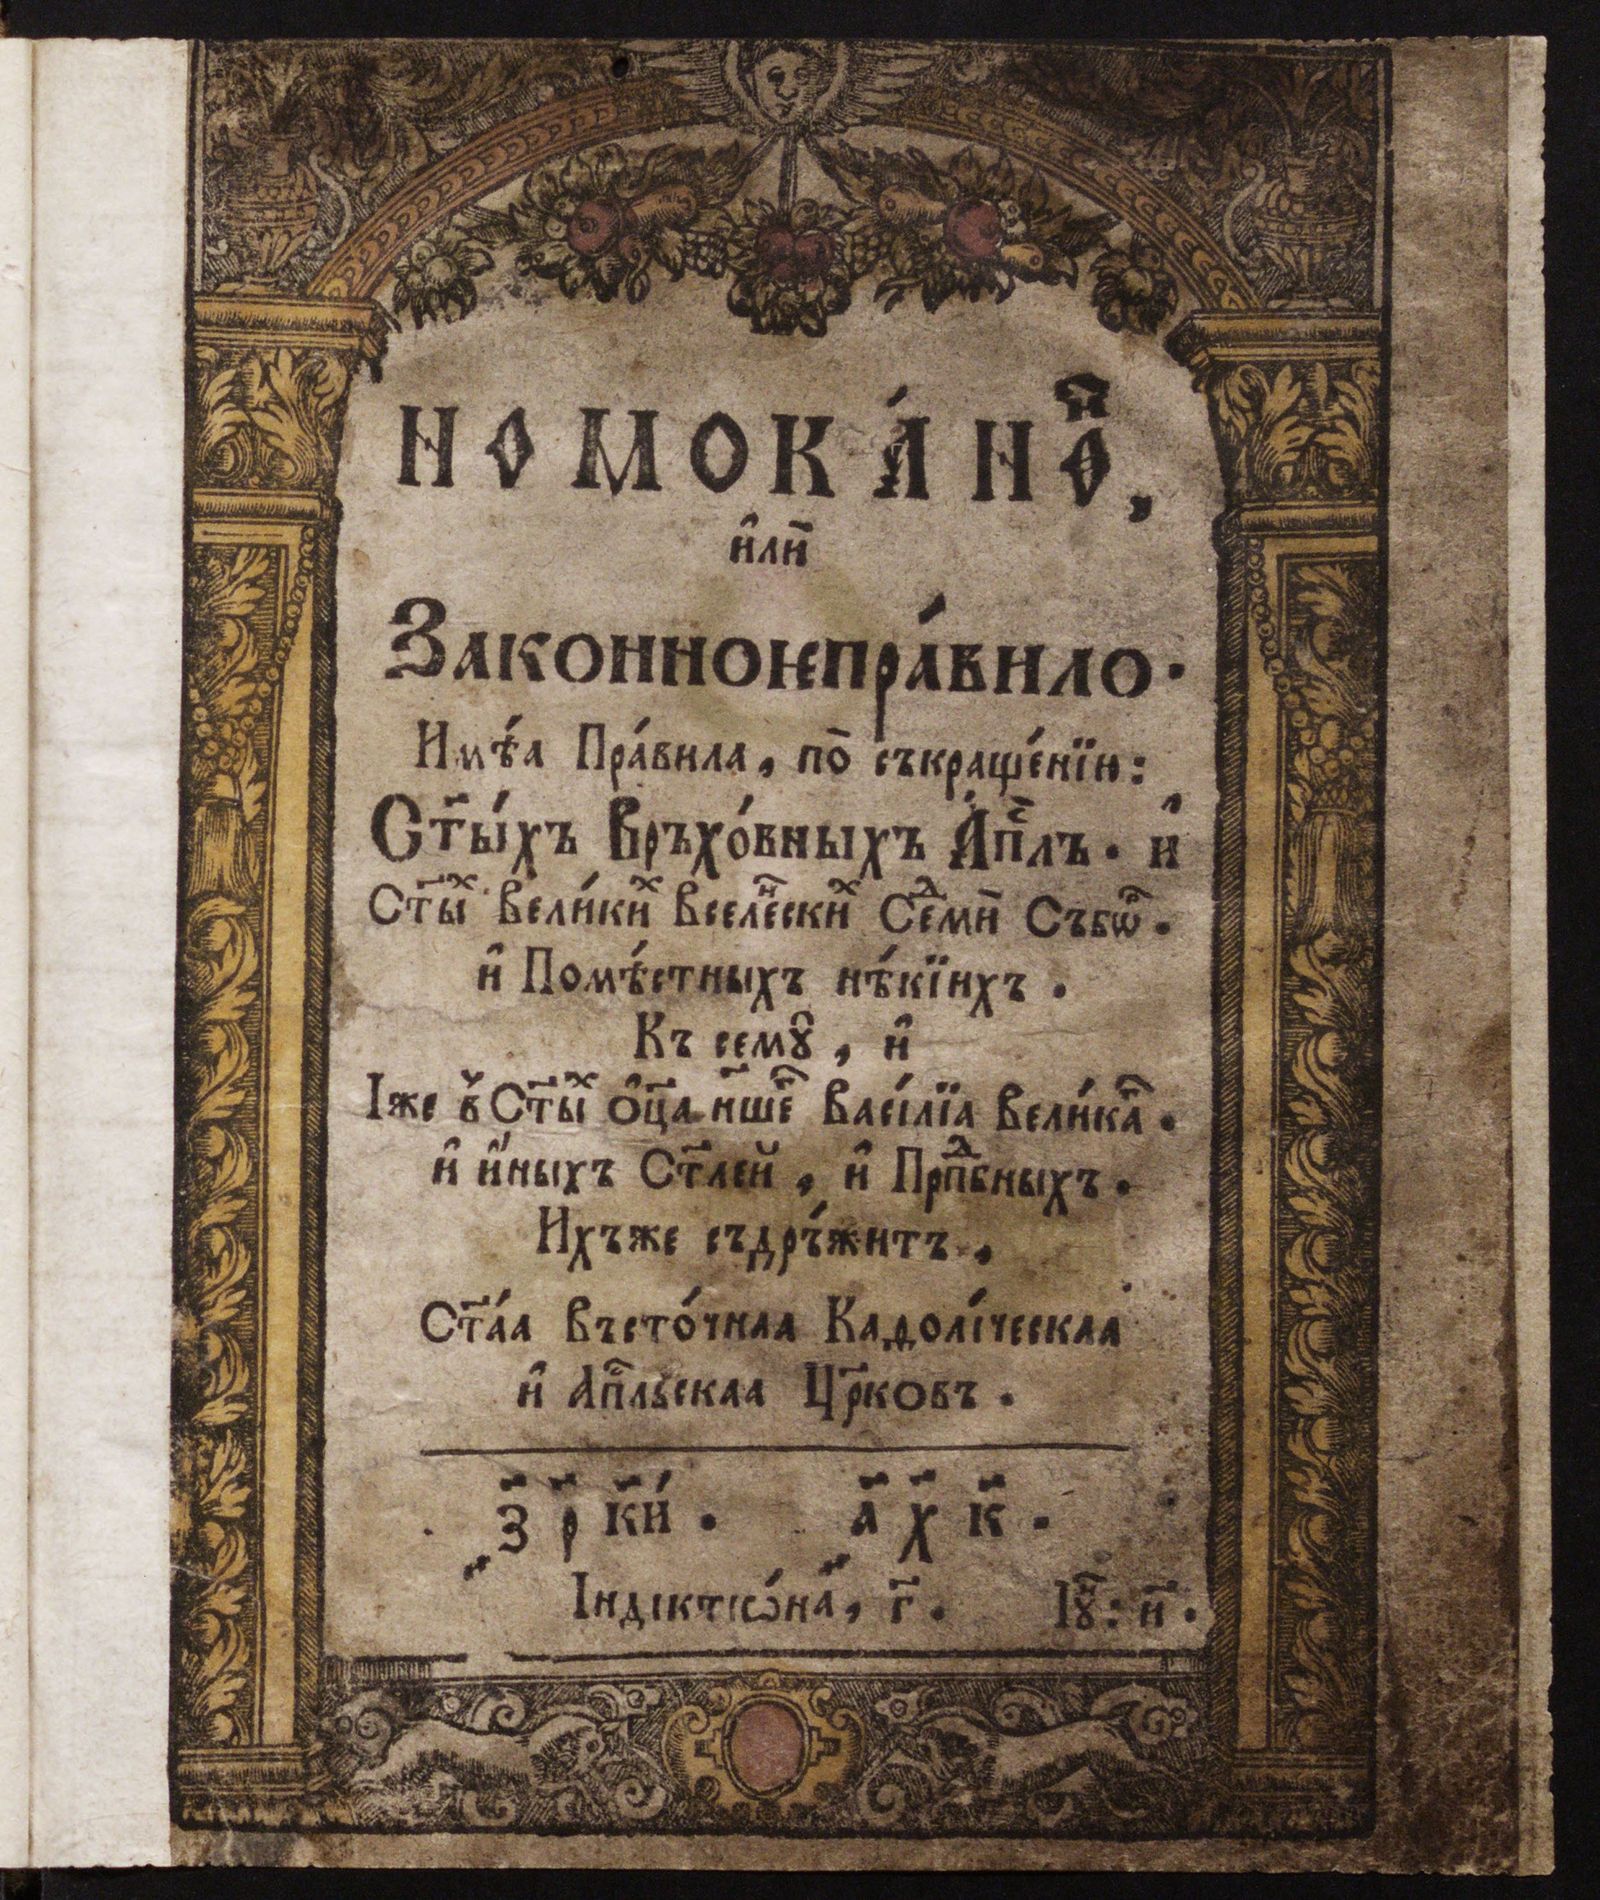 НОМОКА́НѠ҃Н,
и҆лѝ
Законноюпра́вило.
Имѣ́а Пра́вила, по̀ съкраще́нїю:
Ст҃ы́хъ Връхо́вныхъ А҆пⷭ҇лъ. и҆
Ст҃ыⷯ Вели́киⷯ Вселеⷩ҇скиⷯ Сеⷣмѝ Събѡⷬ҇.
и҆ Помѣ́стныхъ нѣ́кїихъ.
Къ семꙋ̀, и҆
Іже въ Ст҃ыⷯ ѻ҆ц҃а нш҃еⷢ҇ Васі́лїа Вели́каⷢ҇.
и҆ и҆́ныхъ Ст҃лей, и҆ Прпⷣбныхъ.
Ихъже съдръ́житъ,
Ст҃а́а Въсто́чнаа Каѳолі́ческаа
и҆ Апⷭ҇льскаа Цр҃ковъ.
҂з҃р҃к҃и҃. ҂а҃х҃к҃.
Індіктіѡ́на, г҃. Іꙋⷩ҇: и҃.